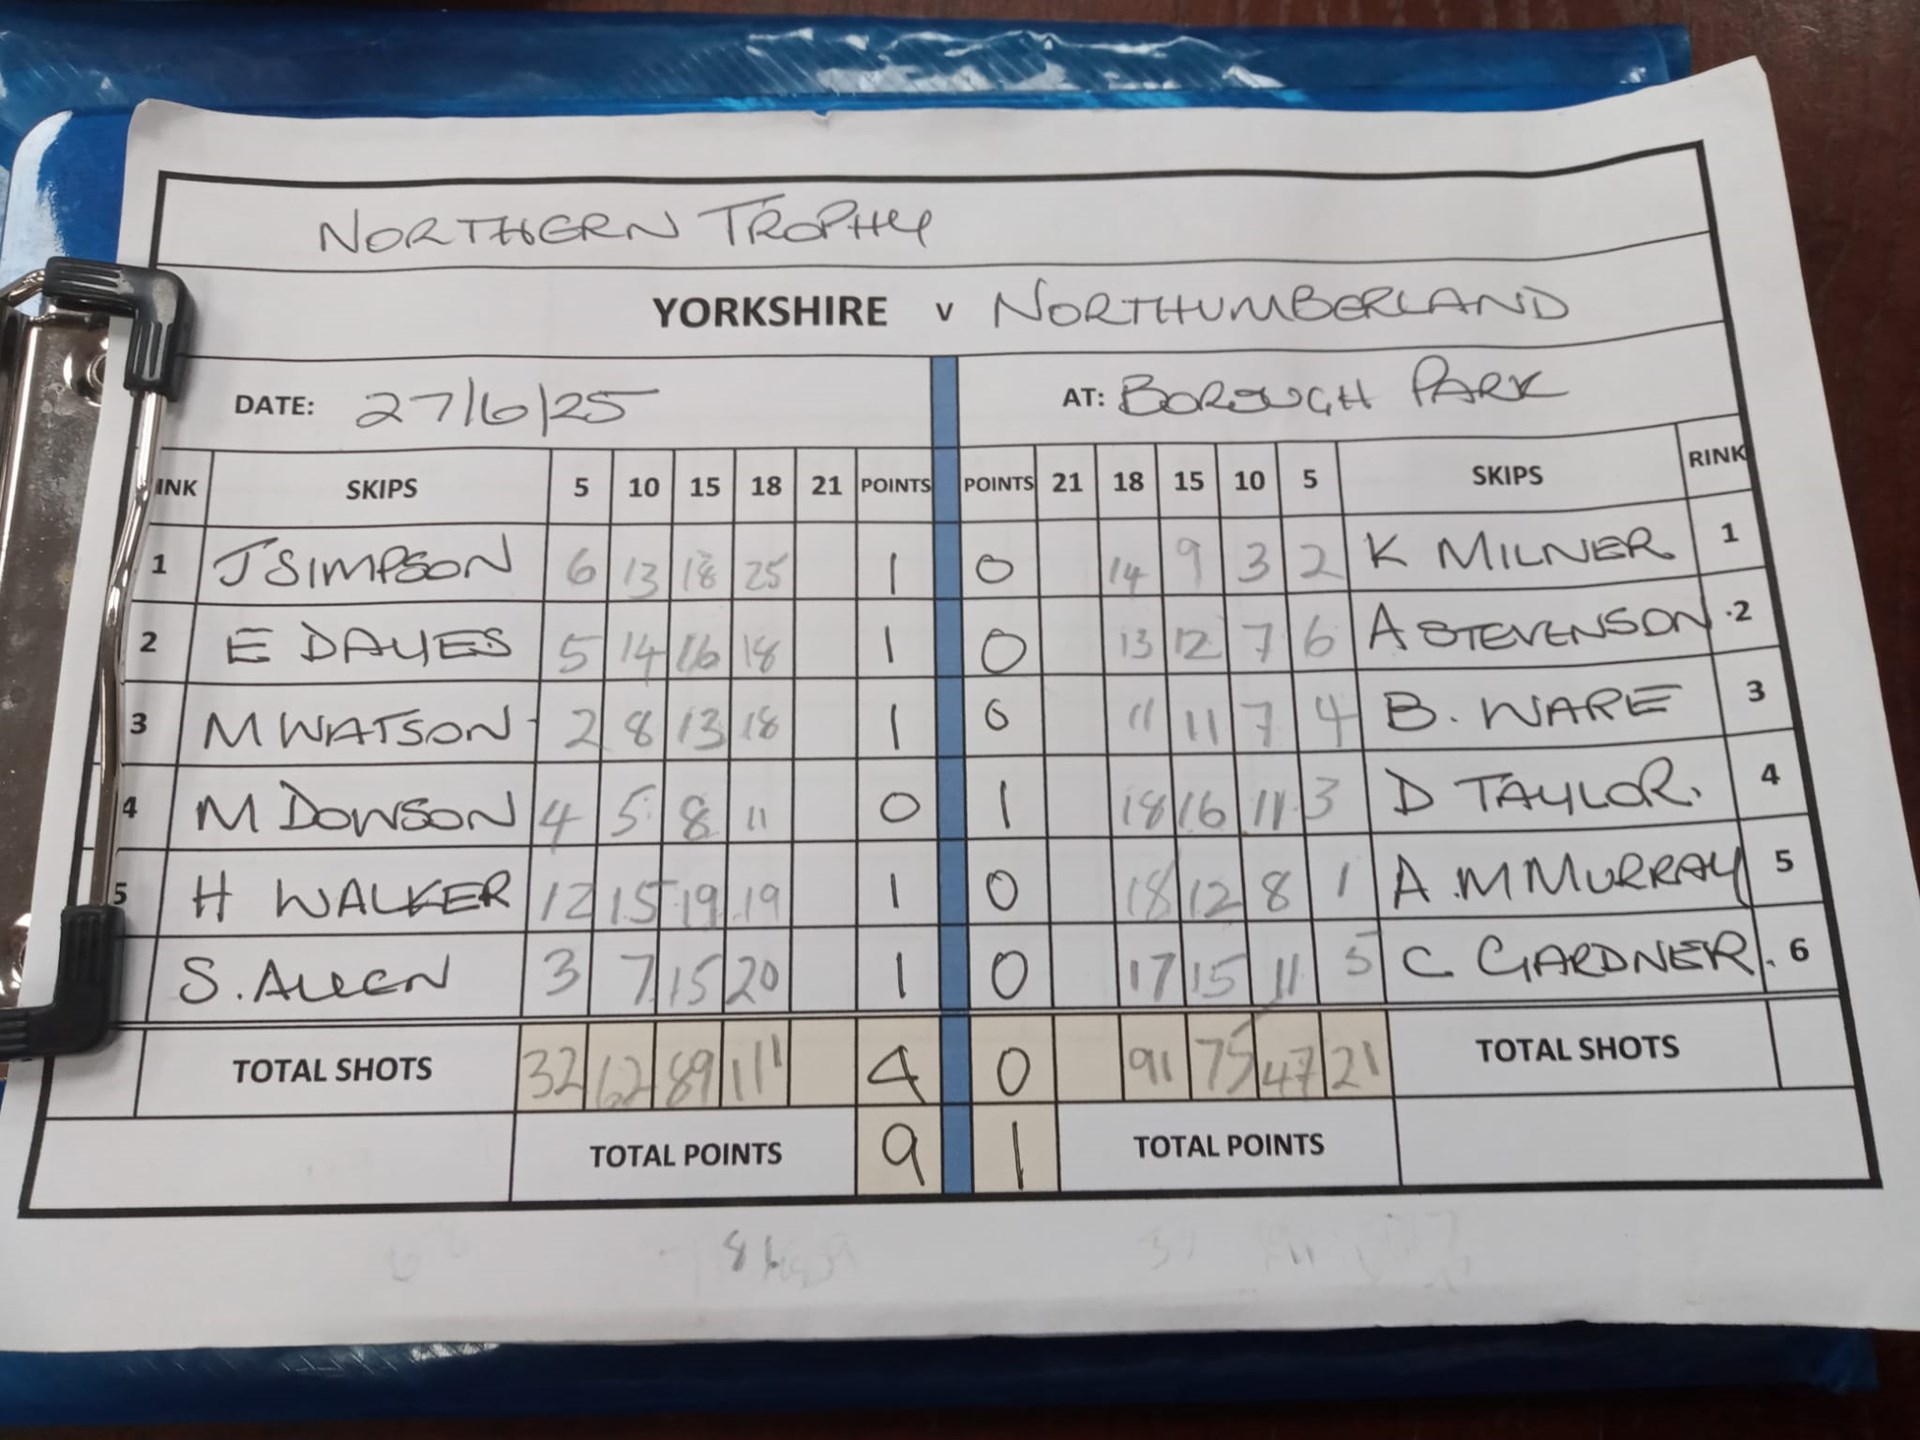 NORTHERN TROPHY
YORKSHIRE v NORTHUMBERLAND
DATE: 27/6/25 AT: BOROUGH PARK
INK SKIPS 5 10 15 18 21 POINTS POINTS 21 18 15 10 5 SKIPS RINK
1 J SIMPSON 6 13 18 25 1 0 14 9 3 2 K MILNER 1
2 E DAYES 5 14 16 18 1 0 13 12 7 6 A STEVENSON 2
3 M WATSON 2 8 13 18 1 0 11 11 7 4 B. WARE 3
4 M DOWSON 4 5 8 11 0 1 18 16 11 3 D TAYLOR. 4
5 H WALKER 12 15 19 19 1 0 18 12 8 1 A.M MURRAY 5
S. ALLEN 3 7 15 20 1 0 17 15 11 5 C GARDNER. 6
TOTAL SHOTS 32 62 89 111 4 0 91 75 47 21 TOTAL SHOTS
TOTAL POINTS 9 1 TOTAL POINTS